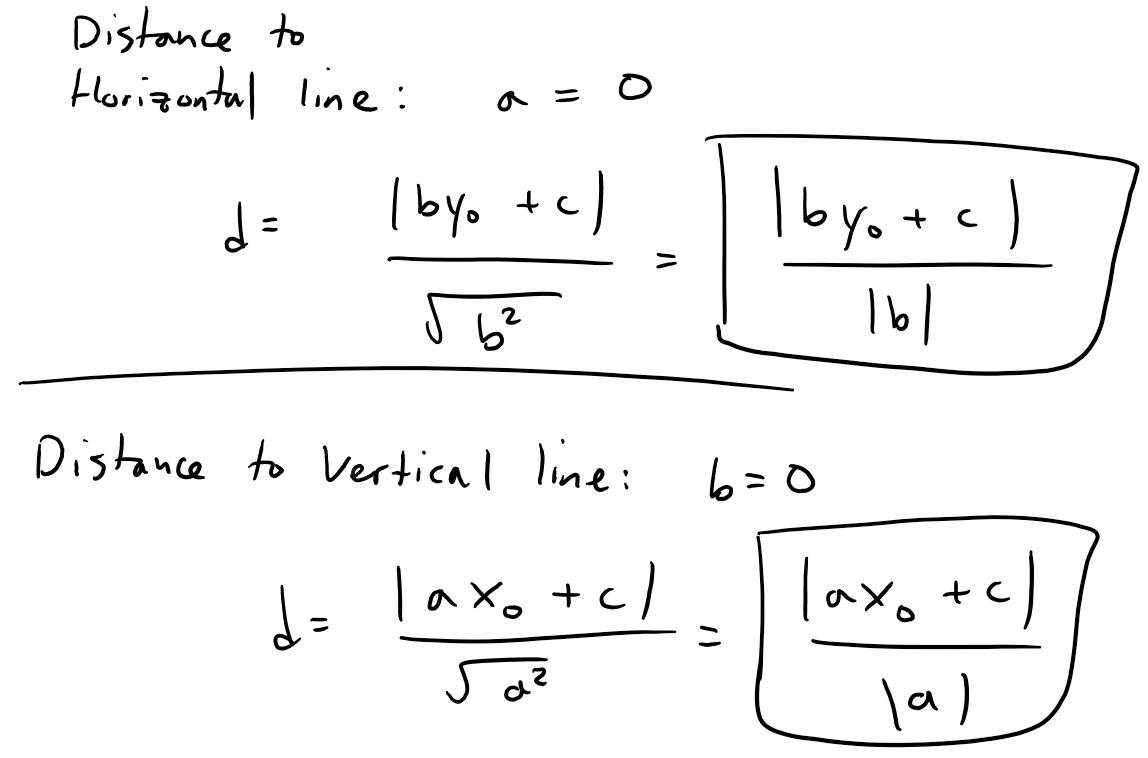 Distance to
Horizontal line: a = 0
d = |by₀ + c| / √b² = |by₀ + c| / |b|
Distance to Vertical line: b = 0
d = |ax₀ + c| / √a² = |ax₀ + c| / |a|